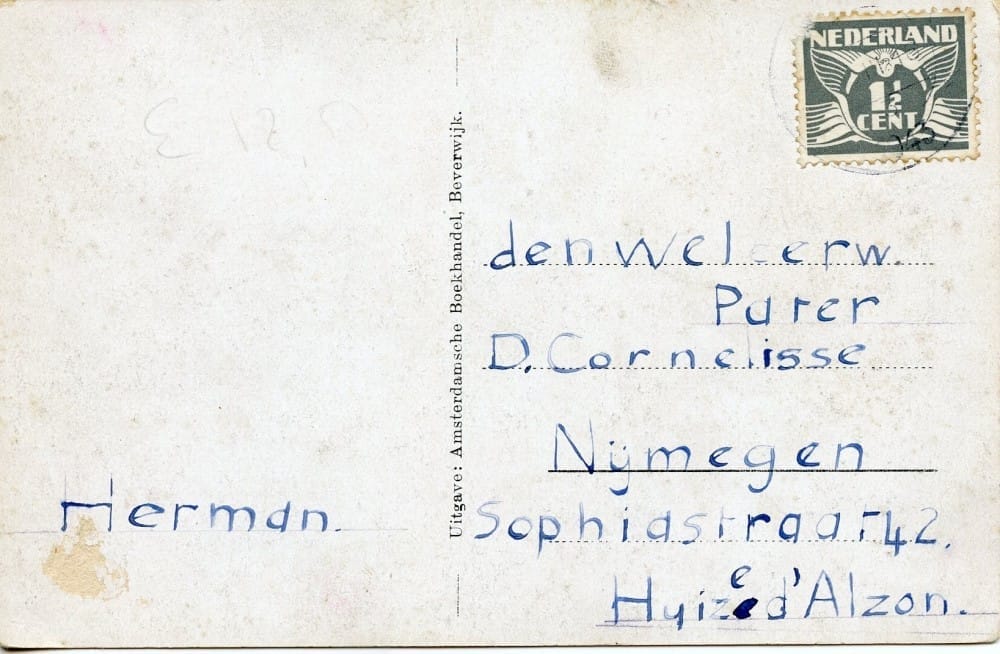 NEDERLAND
1½
CENT
den Wel eerw.
Pater
D. Cornelisse
Nijmegen
Sophiastraat 42.
Huize d'Alzon.
Herman.
Uitgave: Amsterdamsche Boekhandel, Beverwijk.